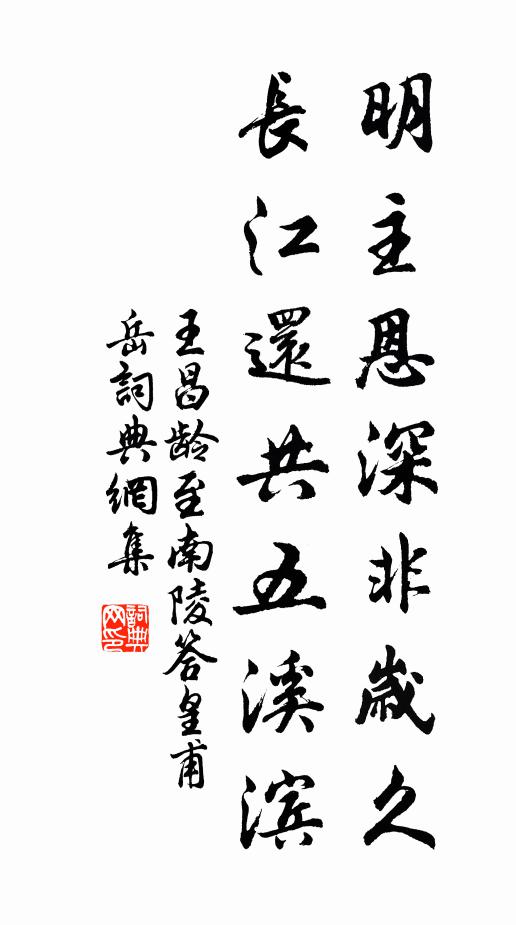 明主恩深非歲久
長江還共五溪濱
王昌齡至南陵答皇甫
岳詞典網集
詞典
网印